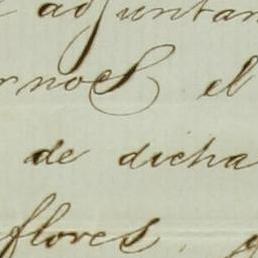 adjuntan
rnos el
de dicha
flores